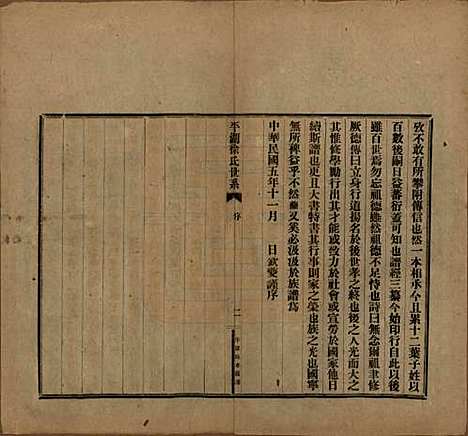 攷不敢有所攀附傳信也然一本相承今且累十二葉子姓以
百數後嗣日益蕃衍蓋可知也譜經三纂今始印行自此以後
雖百世焉勿忘祖德雖然祖德不足恃也詩曰無念爾祖聿修
厥德傳曰立身行道揚名於後世孝之終也後之人光而大之
其惟修學勵行出其才能或致力於社會或宣勞於國家他日
續斯譜也更且大書特書其行事則家之榮也族之光也國寧
無所裨益乎不然亦又奚必汲汲於族譜爲
中華民國五年十一月　日欽夔謹序
平湖徐氏世系　序　二